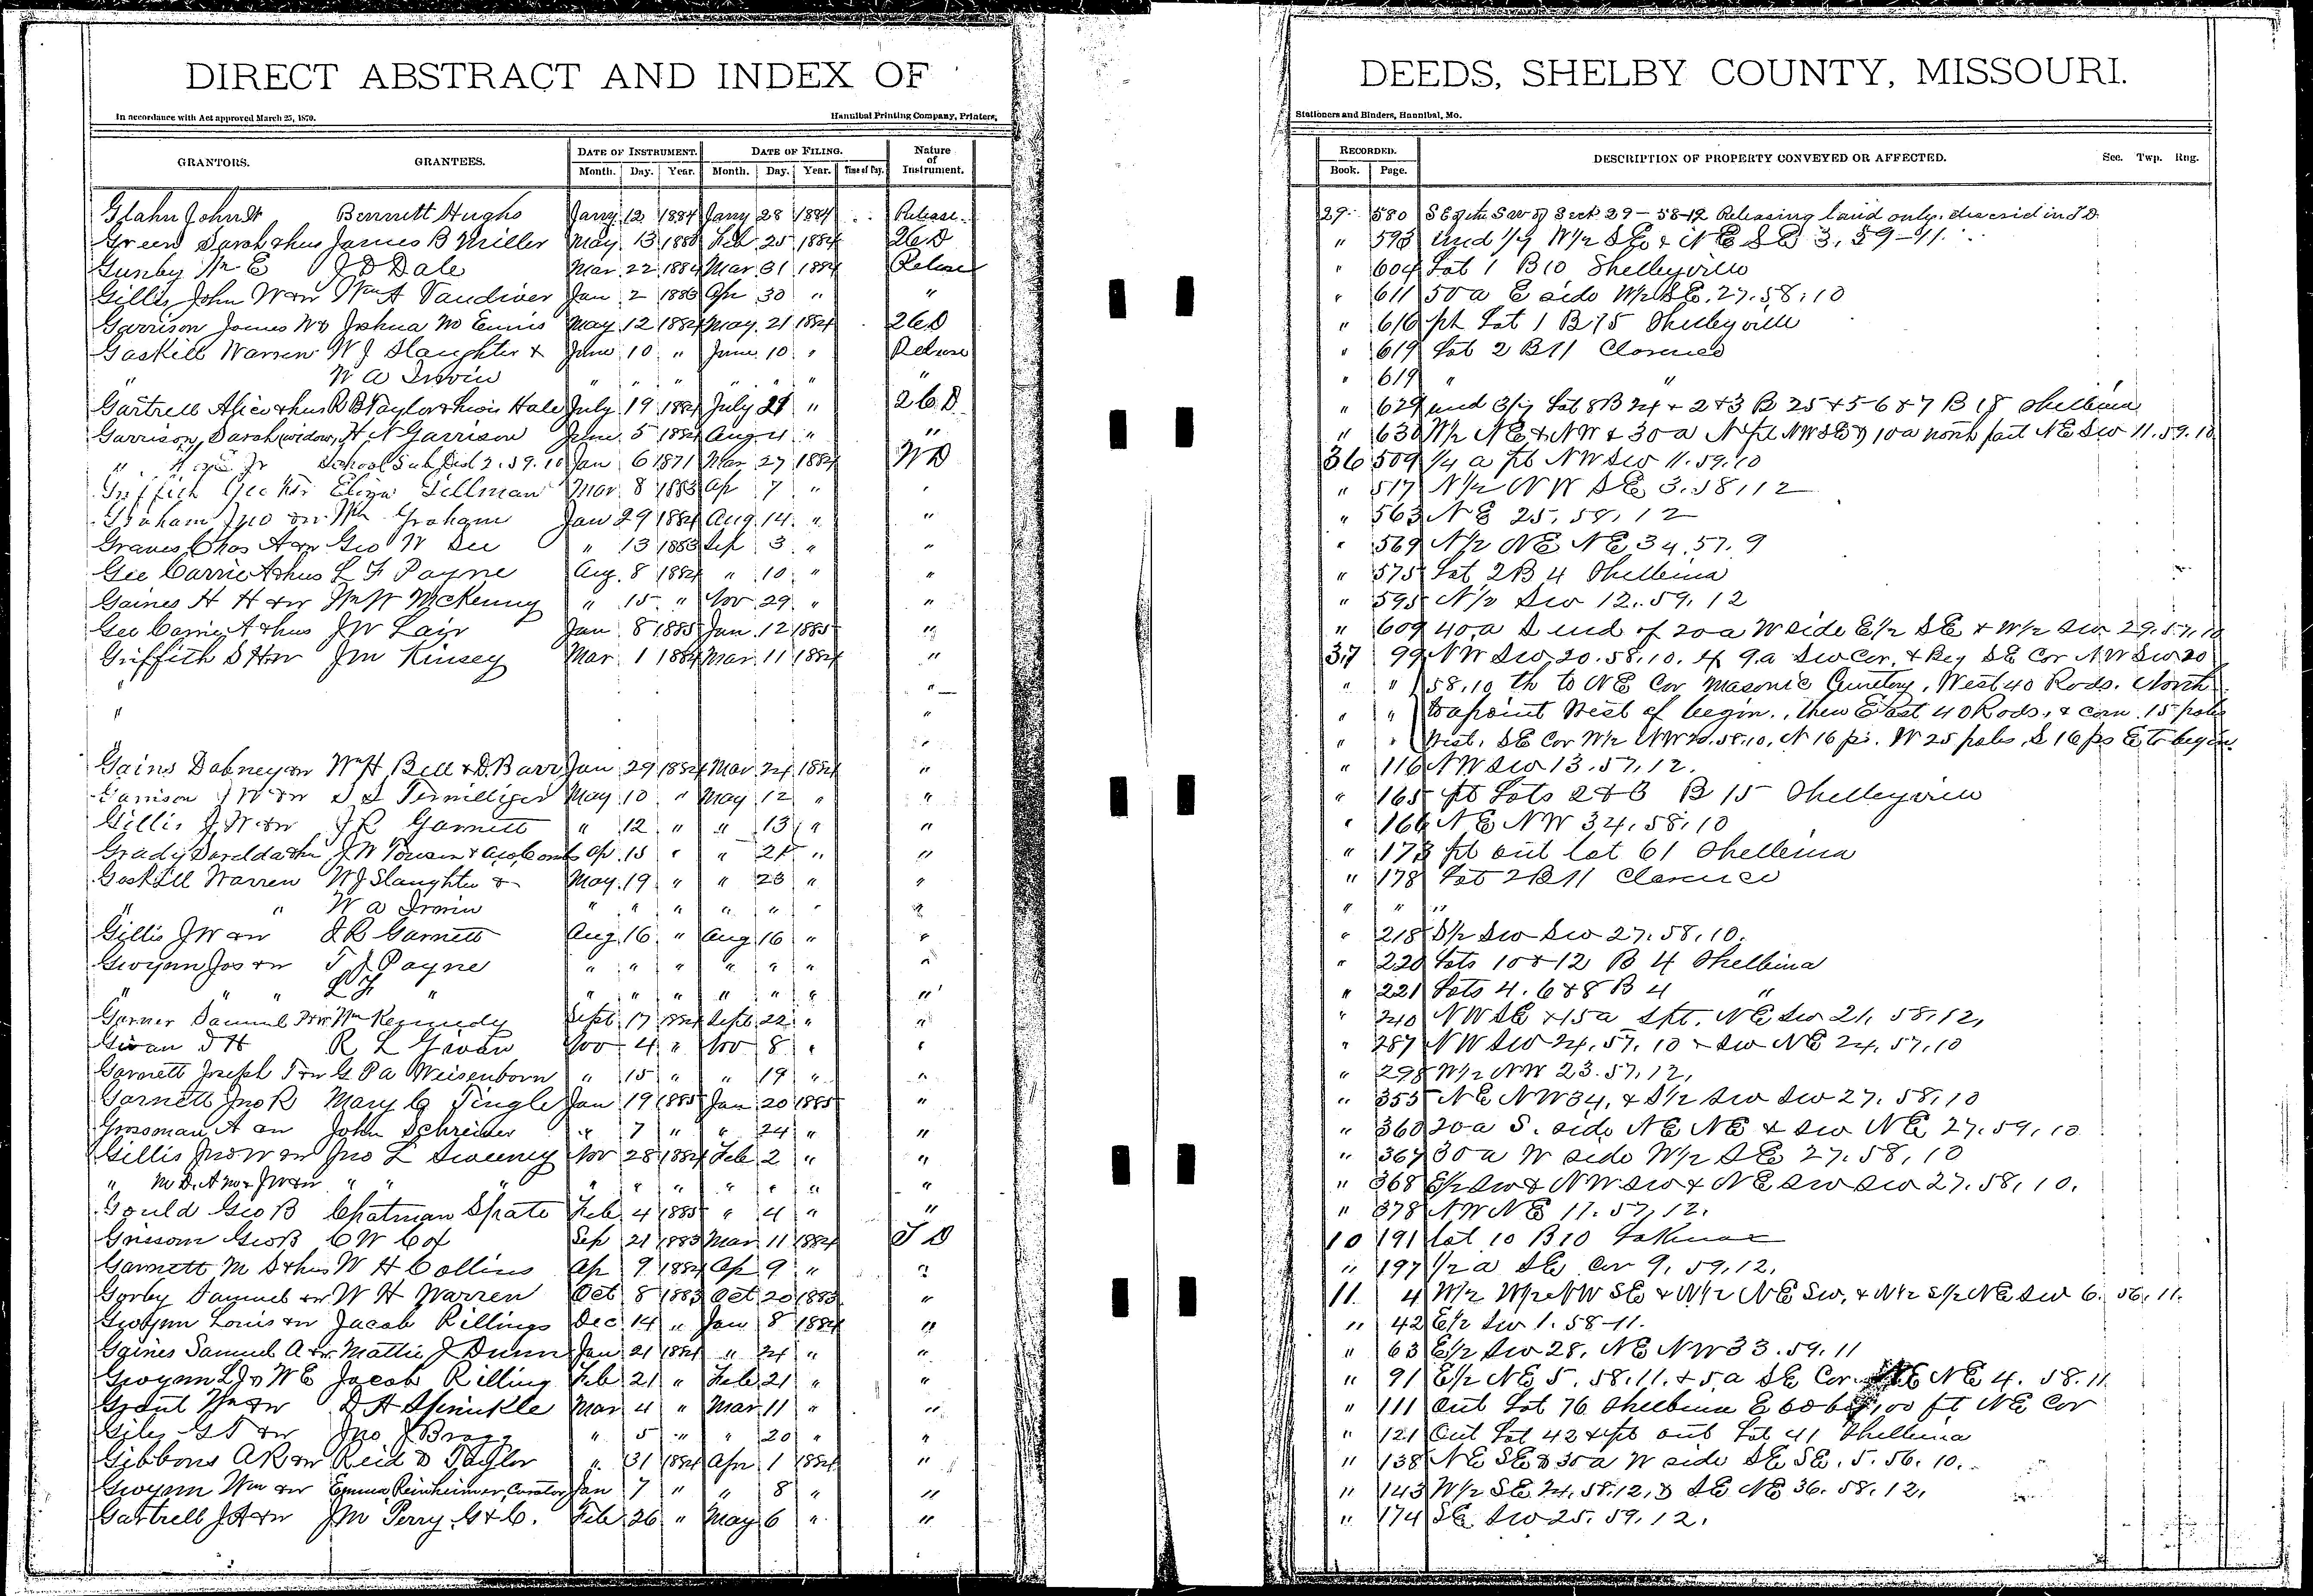 DIRECT ABSTRACT AND INDEX OF DEEDS, SHELBY COUNTY, MISSOURI.
In accordance with Act approved March 25, 1870. Hannibal Printing Company, Printers, Stationers and Binders, Hannibal, Mo.
GRANTORS. GRANTEES. DATE OF INSTRUMENT. DATE OF FILING. Nature of Instrument. RECORDED. DESCRIPTION OF PROPERTY CONVEYED OR AFFECTED. Sec. Twp. Rng.
Month. Day. Year. Month. Day. Year. Time of Day. Book. Page.
Glahn John Bennett Hughs Janry 12 1884 Janry 28 1884 Release 29 580 SE of the SW of Sect 29-58-12 Releasing land only
Green Sarah & hus James B Miller May 13 Feb 25 1884 " 593 und 1/7 W/2 SE & NE SE 3.59-11
Gunby Wm E J D Dale Mar 22 1884 Mar 31 1884 Release " 604 Lot 1 B10 Shelbyville
Gillis John W & w Wm A Vandiver Jan 2 1883 Apr 30 " " " 611 50a E side W/2 SE. 27.58.10
Garrison James W & Joshua M Ennis May 12 1884 May 21 1884 " 616 pt Lot 1 B.15 Shelbyville
Gaskill Warren W J Slaughter & June 10 " June 10 " Release " 619 Lot 2 B11 Clarence
" W A Irwin " " " " " " " " 619 " "
Gartrell Alice & hus R B Taylor & Lewis Hale July 19 1884 July 21 " " 629 und 3/7 Lot 8 B 24 & 2 & 3 B 25 & 5-6 & 7 B 18 Shelbina
Garrison, Sarah (widow) H N Garrison June 5 1884 Aug 4 " " " 630 W/2 NE & NW & 30a N pt NW SE & 10a north part NE SW 11.59.10
" School Sub Dist 2.59.10 Jan 6 1871 Mar 27 1884 WD 36 509 1/4 a pt NW SW 11.59.10
Griffith Geo Eliza Tillman Mar 8 1883 Ap 7 " " " 517 N/2 NW SE 3.58.12
Graham Jno & w Wm Graham Jan 29 1884 Aug 14 " " " 563 NE 25.58.12
Graves Chas A & w Geo W See " 13 1883 Sep 3 " " " 569 N/2 NE NE 34.57.9
Gee Carrie A & hus L F Payne Aug 8 1884 " 10 " " " 575 Lot 2 B 4 Shelbina
Gaines H H & w Wm W McKenny " 15 " Nov 29 " " " 595 N/2 SW 12.59.12
Gee Carrie A & hus J W Lair Jan 8 1885 Jan 12 1885 " " 609 40a S end of 20a W side E/2 SE & W/2 SW 29.57.10
Griffith S H & w J M Kinsey Mar 1 1884 Mar 11 1884 " 37 99 NW SW 20.58.10. & 9.a SW Cor. & Beg SE Cor NW SW 20
" " " " 58.10 th to NE Cor Masonic Cemetery, West 40 Rods. North
" " " " to a point West of begin., then East 40 Rods, & com. 15 poles
" " " " West, SE Cor W/2 NW 20.58.10, N 16 ps. W 25 poles, S 16 ps E to begin.
Gains Dabney & w Wm H Bell & D. Barr Jan 29 1884 Mar 24 1884 " " 116 NW SW 13.57.12.
Garrison J W & w S S Terwilliger May 10 " May 12 " " " 165 pt Lots 2 & 3 B 15 Shelbyville
Gillis J W & w J R Garnett " 12 " " 13 " " " 166 NE NW 34.58.10
Grady & hus J W Towson & Ap 15 " " 21 " " " 173 pt out lot 61 Shelbina
Gaskill Warren W J Slaughter & May 19 " " 23 " " " 178 Lot 2 B11 Clarence
" " W A Irwin " " " " " " " " " "
Gillis J W & w J R Garnett Aug 16 " Aug 16 " " " 218 S/2 SW SW 27.58.10.
Gwynn Jos & w T J Payne " " " " " " " " 220 Lots 10 & 12 B 4 Shelbina
" " " L F " " " " " " " " " 221 Lots 4.6 & 8 B 4 "
Garner Samuel & w Wm Kennedy Sept 17 1884 Sept 22 " " " 240 NW SE & 15a Spt. NE SW 21.58.12,
Givan R L Givan Nov 4 " Nov 8 " " " 287 NW SW 24.57.10 & SW NE 24.57.10
Garnett Joseph T & w G P A Weisenborn " 15 " " 19 " " " 298 W/2 NW 23.57.12.
Garnett Jno R Mary C Tingle Jan 19 1885 Jan 20 1885 " " 355 NE NW 34. & S/2 SW SW 27.58.10
Grossman A & w John Schreiner " 7 " " 24 " " " 360 20a S. side NE NE & SW NE 27.59.10
Gillis Jno W & w Jno L Sweeney Nov 28 1884 Feb 2 " " " 367 30a W side W/2 SE 27.58.10
" M D, A M & J W & w " " " " " " " " " " " 368 E/2 SW & NW SW & NE SW SW 27.58.10.
Gould Geo B Chatman Spate Feb 4 1885 " 4 " " " 378 NW NE 17.57.12.
Grissom Geo B C W Cox Sep 21 1883 Mar 11 1884 T D 10 191 Lot 10 B10
Garnett M S & hus W H Collins Ap 9 1884 Ap 9 " " " 197 1/2 a SE cor 9.59.12.
Gorby Samuel & w W H Warren Oct 8 1883 Oct 20 1883 " 11 4 W/2 W/2 NW SE & W/2 NE SW, & N/2 S/2 NE SW 6. 56. 11.
Gwynn Louis & w Jacob Rillings Dec 14 " Jan 8 1884 " " 42 E/2 SW 1.58-11.
Gaines Samuel A & w Mattie J Dunn Jan 21 1884 " 24 " " " 63 E/2 SW 28. NE NW 33.59.11
Gwynn L J & W E Jacob Rilling Feb 21 " Feb 21 " " " 91 E/2 NE 5.58.11. & 5a SE Cor NE 4.58.11
Grant Wm & w D H Sprinkle Mar 4 " Mar 11 " " " 111 Out Lot 76 Shelbina E 60 by 100 ft NE Cor
Giles G T & w Jno J Bragg " 5 " " 20 " " " 121 Out Lot 42 & pt out Lot 41 Shelbina
Gibbons A R & w Reid & Taylor " 31 1884 Apr 1 1884 " " 138 NE SE & 30a W side SE SE. 5.56.10.
Gwynn Wm & w Emma Reinheimer, Curator Jan 7 " " 8 " " " 143 W/2 SE 24.58.12, & SE NE 36.58.12,
Gartrell J A & w J M Perry, G & C. Feb 26 " May 6 " " " 174 SE SW 25.59.12.